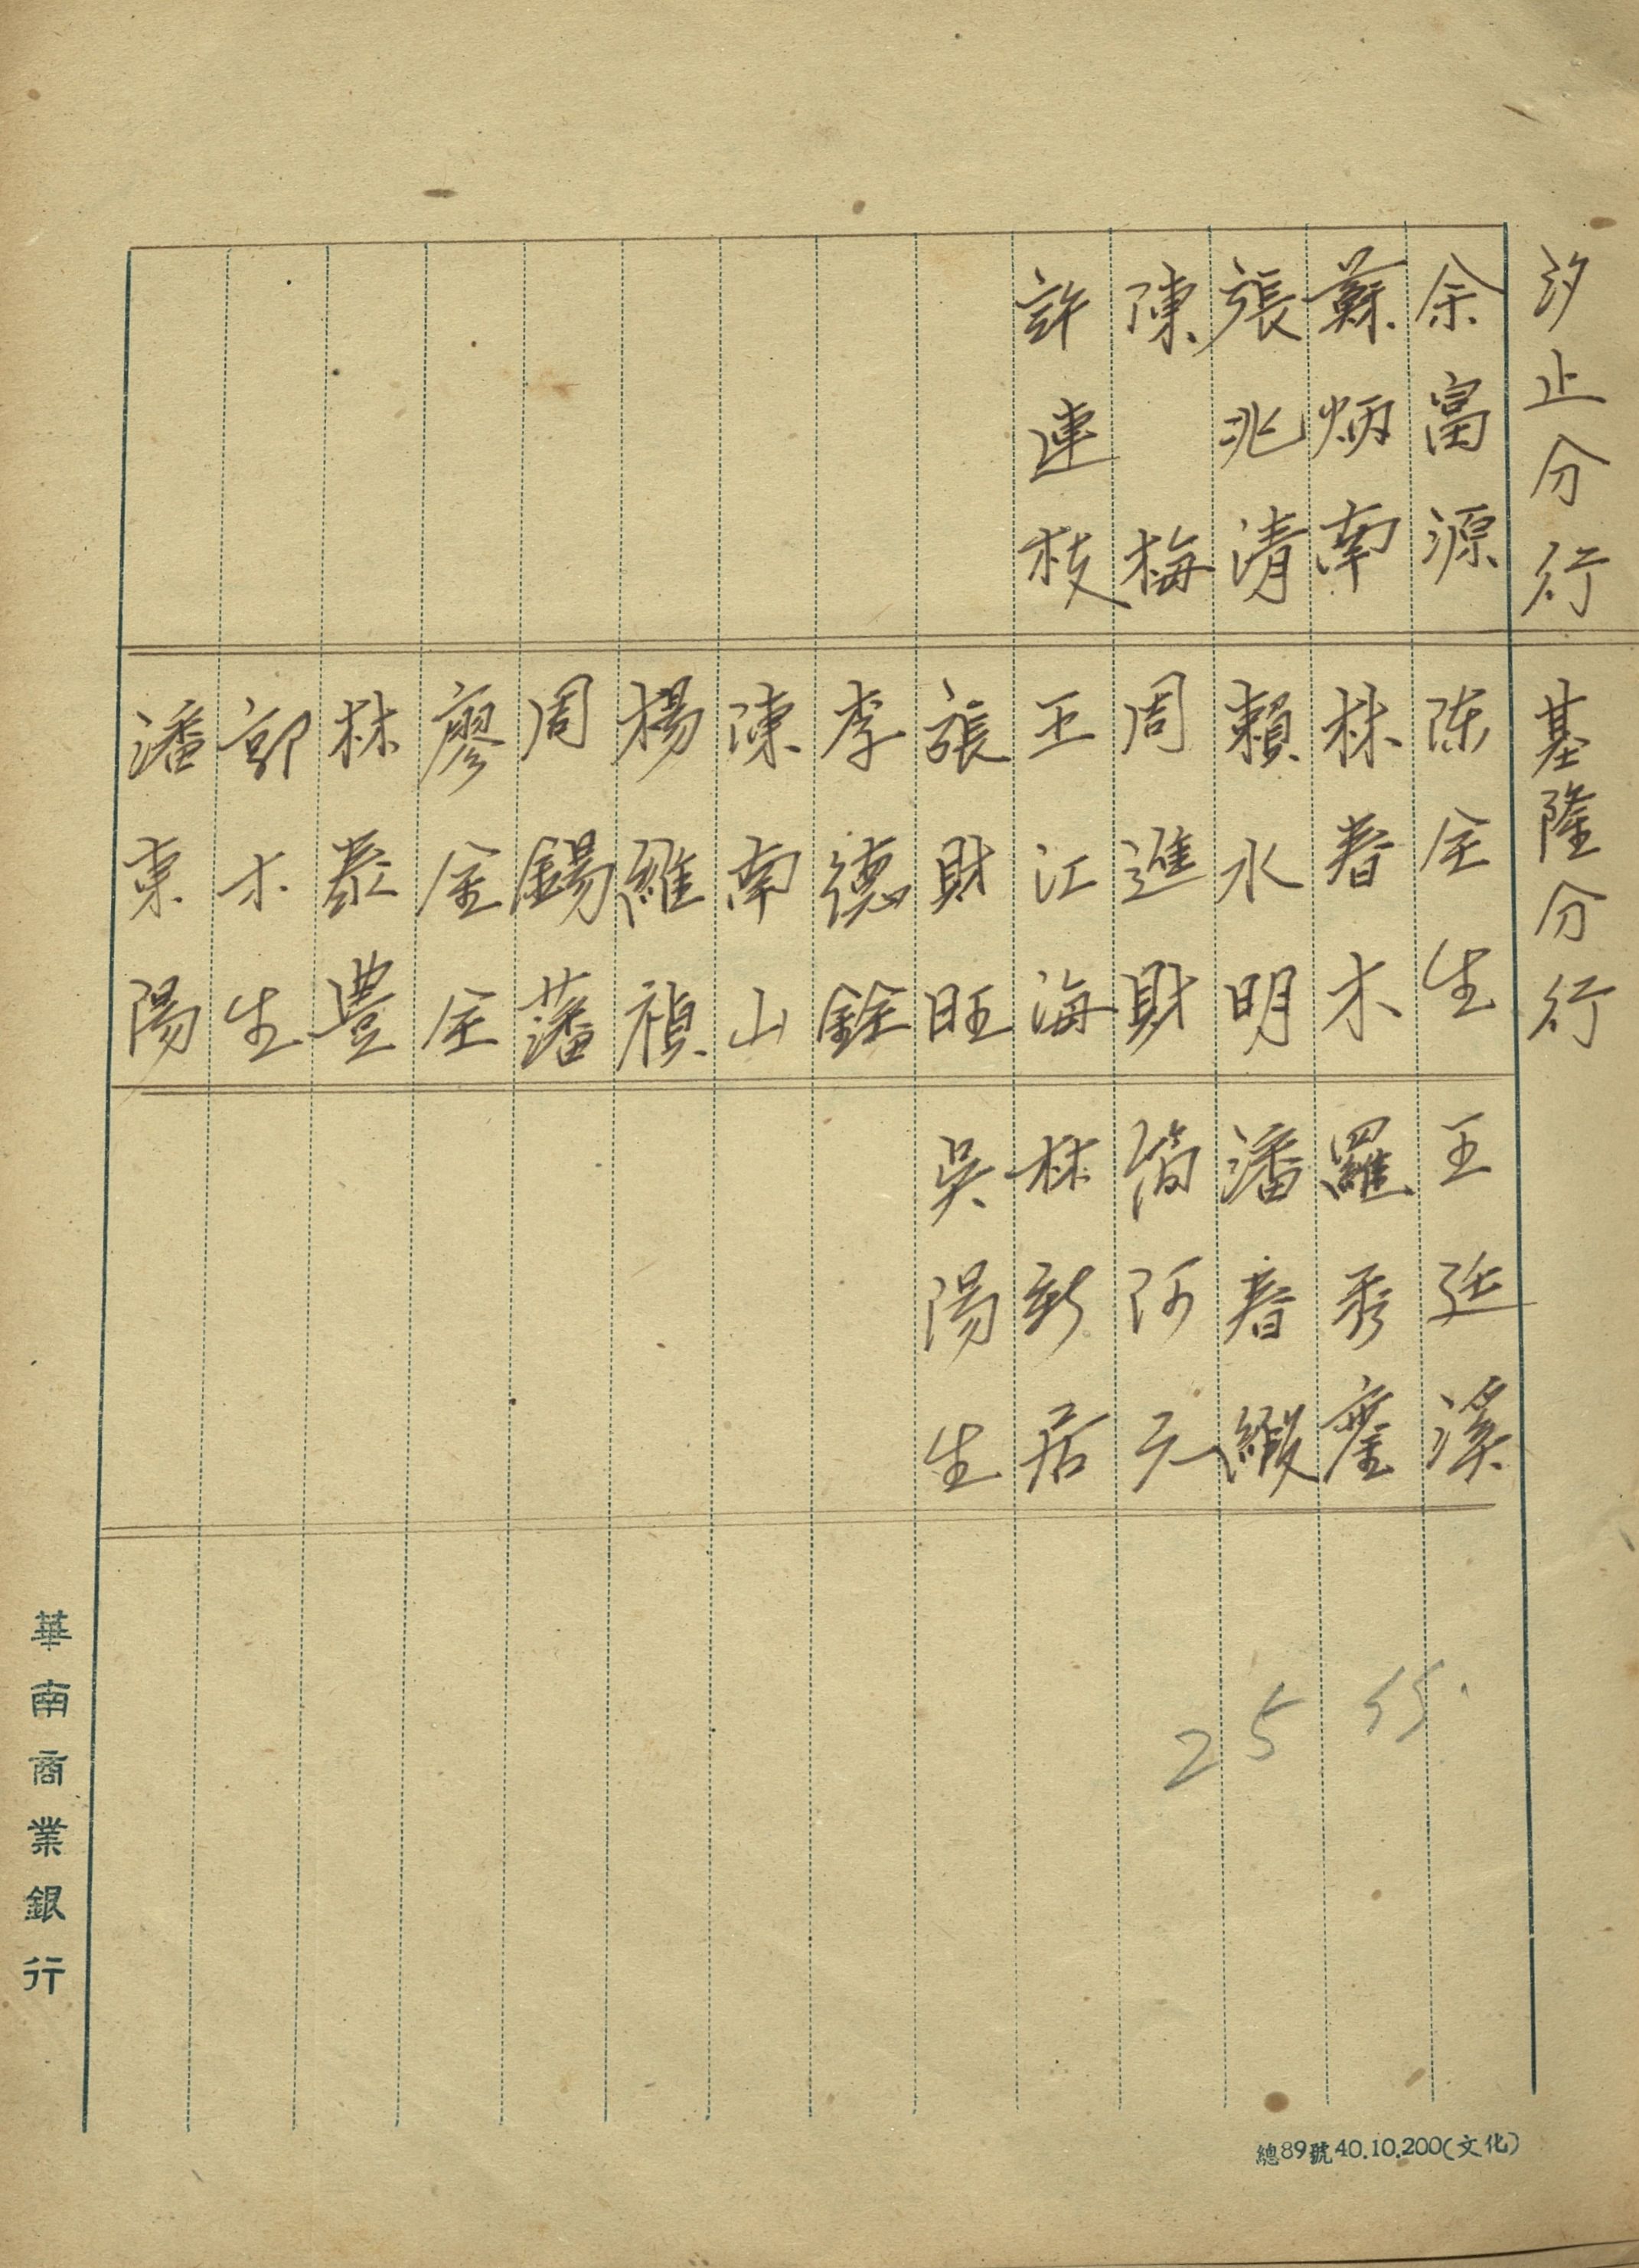 汐止分行
余富源
蘇炳南
張兆清
陳梅
許連枝
基隆分行
陈全生
林春木
賴水明
周進財
王江海
張財旺
李德銓
陳南山
楊維禎
周錫藩
廖金全
林泰豊
郭木生
潘東陽
王延溪
羅秀
潘春緞
简阿元
林新居
吳陽生
25份.
華南商業銀行
總89號40.10.200(文化)